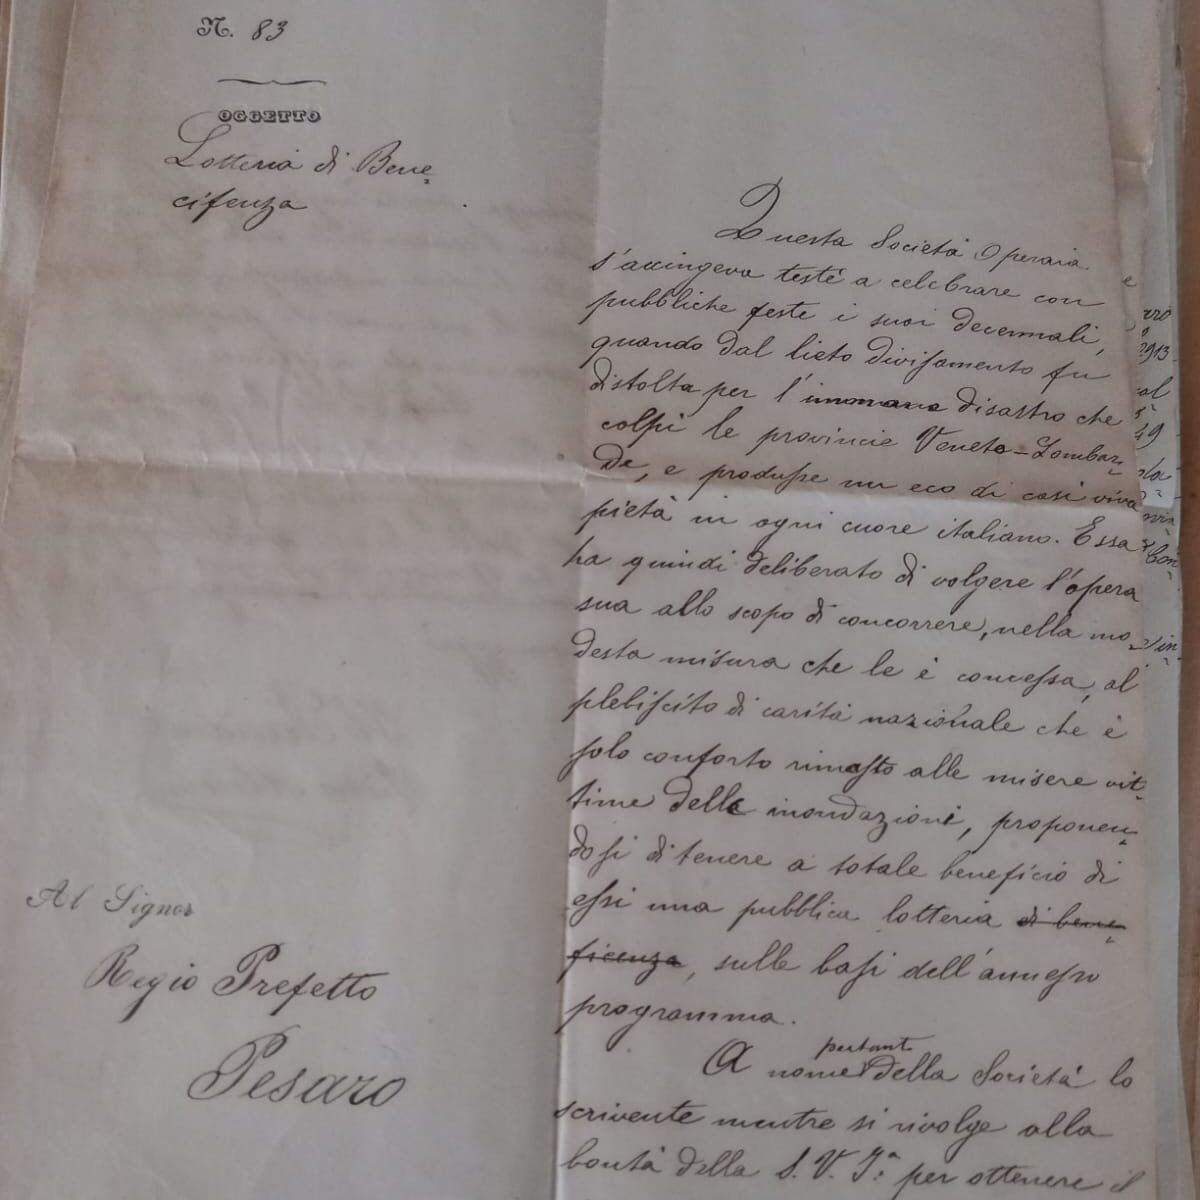 N. 83
OGGETTO
Lotteria di Bene=
cifenza
Questa Società Operaia
s'accingeva testè a celebrare con
pubbliche feste i suoi decennali,
quando dal lieto divisamento fu
distolta per l'immane disastro che
colpì le provincie Veneto-Lombar=
de, e produsse un eco di così viva
pietà in ogni cuore italiano. Essa
ha quindi deliberato di volgere l'opera
sua allo scopo di concorrere, nella mo=
desta misura che le è concessa, al
plebiscito di carità nazionale che è
solo conforto rimasto alle misere vit=
time delle inondazioni, proponen=
dosi di tenere a totale beneficio di
essi una pubblica lotteria di bene=
ficenza, sulle basi dell'annesso
programma.
pertanto
A nome della Società lo
scrivente mentre si rivolge alla
bontà della S. V. Ia: per ottenere il
Al Signor
Regio Prefetto
Pesaro